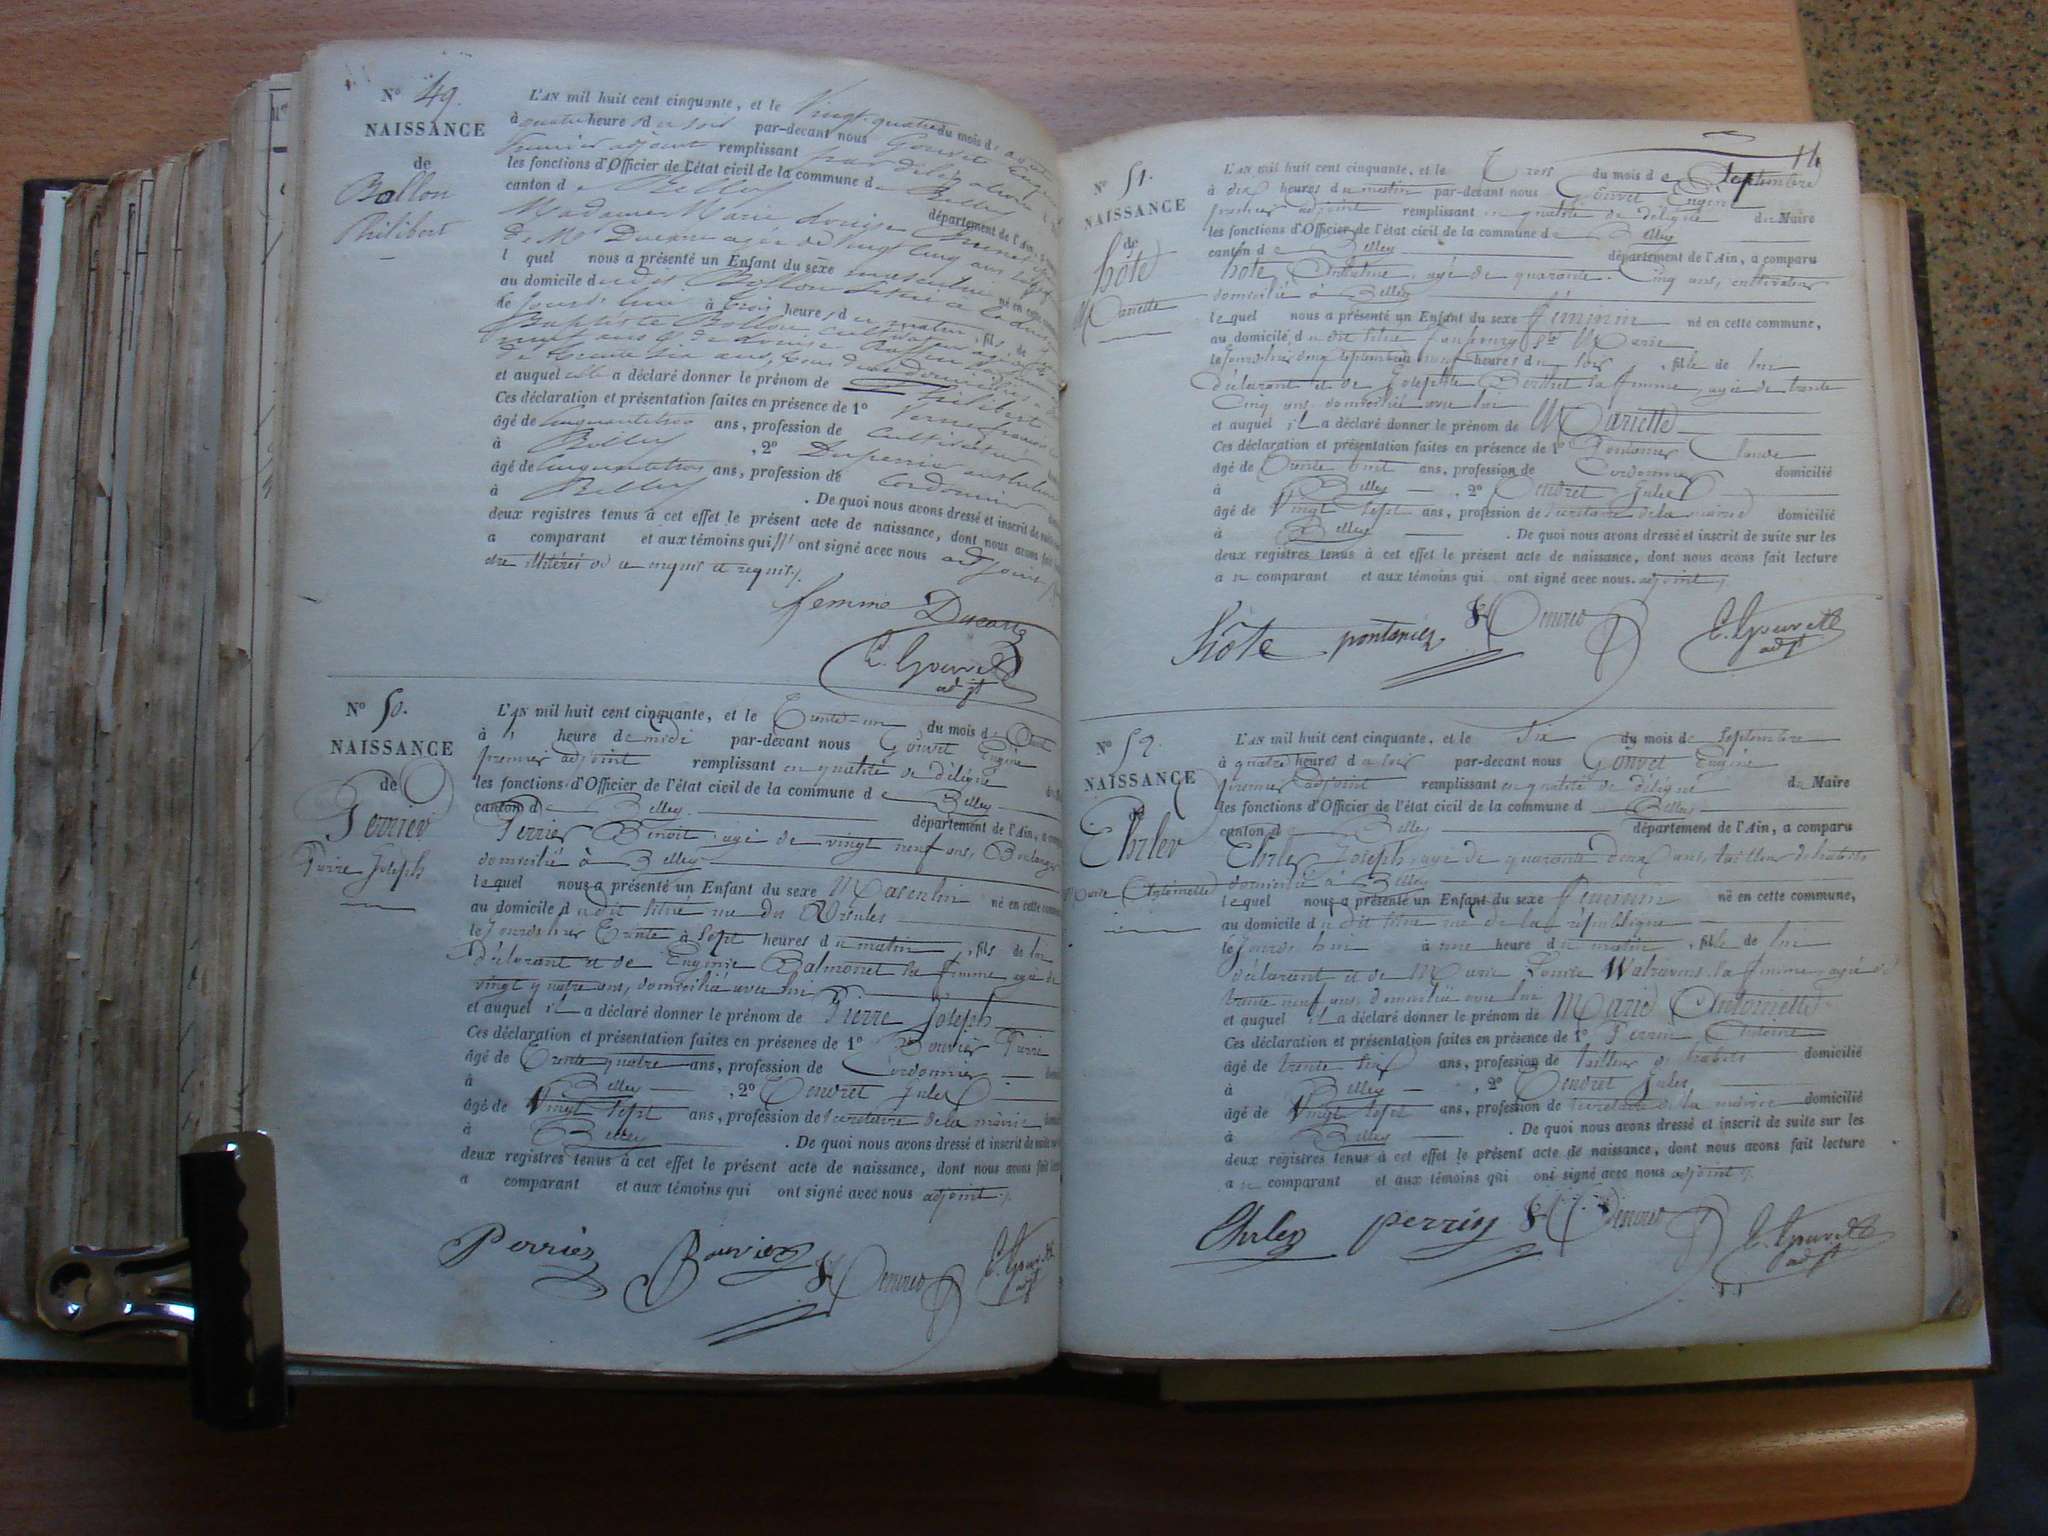 N° 49.
NAISSANCE
de
Bollon
Philibert
L'AN mil huit cent cinquante, et le Vingt-quatre du mois d
à quatre heures du soir par-devant nous Gouvet
premier adjoint remplissant
les fonctions d'Officier de l'état civil de la commune de Belley
canton de Belley département de l'Ain, a
Madame Marie Louise
de Mr Ducarre agée de Vingt cinq ans
l quel nous a présenté un Enfant du sexe masculin né en cette
au domicile dudit Bollon
à trois heures du matin, fils de
Baptiste Bollon, cultivateur
ans & de Louise
de trente six ans, tous deux domiciliés à
et auquel elle a déclaré donner le prénom de Philibert
Ces déclaration et présentation faites en présence de 1°
âgé de Cinquante trois ans, profession de Cultivateur
à Belley, 2°
âgé de Cinquante trois ans, profession de Cordonnier
à Belley. De quoi nous avons dressé et inscrit de suite
deux registres tenus à cet effet le présent acte de naissance, dont nous avons fait
a comparant et aux témoins qui n' ont signé avec nous adjoint
être illitérés de ce enquis et requis
femme Ducarre
E. Gouvet
adjt
N° 50.
NAISSANCE
de
Perrier
Pierre Joseph
L'AN mil huit cent cinquante, et le Trente-un du mois d Août
à 1 heure de midi par-devant nous Gouvet Eugène
premier adjoint remplissant en qualité de délégué
les fonctions d'Officier de l'état civil de la commune de Belley
canton de Belley département de l'Ain, a
Perrier Benoit, agé de vingt neuf ans, Boulanger
domicilié à Belley
lequel nous a présenté un Enfant du sexe Masculin né en cette commune
au domicile du dit situé rue des Ursules
le jourd'hier Trente à Sept heures du matin, fils de lui
déclarant et de Eugénie Balmonet sa femme agée de
vingt quatre ans, domiciliée avec lui
et auquel il a déclaré donner le prénom de Pierre Joseph
Ces déclaration et présentation faites en présence de 1° Bouvier Pierre
âgé de Trente quatre ans, profession de Cordonnier
à Belley, 2° Tendret Jules
âgé de Vingt Sept ans, profession de Secrétaire de la mairie
à Belley. De quoi nous avons dressé et inscrit de suite sur
deux registres tenus à cet effet le présent acte de naissance, dont nous avons fait
a comparant et aux témoins qui ont signé avec nous adjoint
Perrier Bouvier Tendret E. Gouvet
adjt
N° 51.
NAISSANCE
de
hôte
Mariette
L'AN mil huit cent cinquante, et le Trois du mois de Septembre
à dix heures du matin par-devant nous Gouvet Eugène
premier adjoint remplissant en qualité de délégué du Maire
les fonctions d'Officier de l'état civil de la commune de Belley
canton de Belley département de l'Ain, a comparu
hôte Anthelme, agé de quarante-Cinq ans, cultivateur
domicilié à Belley
lequel nous a présenté un Enfant du sexe féminin né en cette commune,
au domicile du dit situé faubourg Ste Marie
le jourd'hier deux Septembre neuf heures du soir, fille de lui
déclarant et de Josephte Berthet sa femme, agée de trente
Cinq ans, domiciliée avec lui
et auquel il a déclaré donner le prénom de Mariette
Ces déclaration et présentation faites en présence de 1° Pontanier Claude
âgé de Trente huit ans, profession de Cordonnier domicilié
à Belley, 2° Tendret Jules
âgé de Vingt Sept ans, profession de Secrétaire de la mairie domicilié
à Belley. De quoi nous avons dressé et inscrit de suite sur les
deux registres tenus à cet effet le présent acte de naissance, dont nous avons fait lecture
au comparant et aux témoins qui ont signé avec nous adjoint
hôte pontanier Tendret E. Gouvet
adjt
N° 52.
NAISSANCE
de
Ehrler
Marie Antoinette
L'AN mil huit cent cinquante, et le Six du mois de Septembre
à quatre heures du soir par-devant nous Gouvet Eugène
premier adjoint remplissant en qualité de délégué du Maire
les fonctions d'Officier de l'état civil de la commune d Belley
canton de Belley département de l'Ain, a comparu
Ehrler Joseph, agé de quarante deux ans, tailleur d'habits
domicilié à Belley
lequel nous a présenté un Enfant du sexe féminin né en cette commune,
au domicile du dit situé rue de la république
le jourd'hui à une heure du matin, fille de lui
déclarant et de Marie Louise Walravens sa femme, agée de
trente neuf ans, domiciliée avec lui
et auquel il a déclaré donner le prénom de Marie Antoinette
Ces déclaration et présentation faites en présence de 1° Perrin Antoine
âgé de trente six ans, profession de tailleur d'habits domicilié
à Belley, 2° Tendret Jules
âgé de Vingt Sept ans, profession de Secrétaire de la mairie domicilié
à Belley. De quoi nous avons dressé et inscrit de suite sur les
deux registres tenus à cet effet le présent acte de naissance, dont nous avons fait lecture
au comparant et aux témoins qui ont signé avec nous adjoint
Ehrler perrin Tendret E. Gouvet
adjt